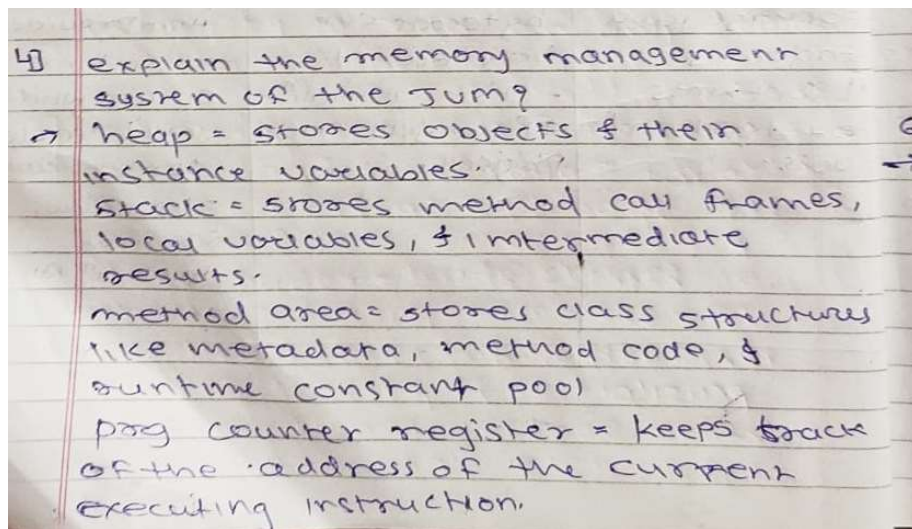 4] explain the memory management
system of the JVM?
→ heap = stores objects & their
instance variables.
stack = stores method call frames,
local variables, & intermediate
results.
method area = stores class structures
like metadata, method code, &
runtime constant pool
prog counter register = keeps track
of the address of the current
executing instruction.